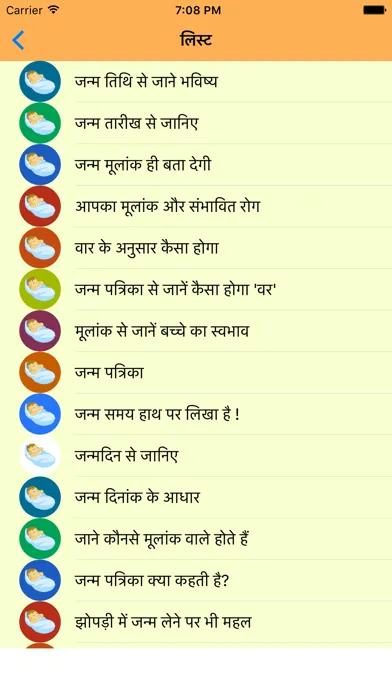 Carrier 7:08 PM
लिस्ट
जन्म तिथि से जाने भविष्य
जन्म तारीख से जानिए
जन्म मूलांक ही बता देगी
आपका मूलांक और संभावित रोग
वार के अनुसार कैसा होगा
जन्म पत्रिका से जानें कैसा होगा 'वर'
मूलांक से जानें बच्चे का स्वभाव
जन्म पत्रिका
जन्म समय हाथ पर लिखा है !
जन्मदिन से जानिए
जन्म दिनांक के आधार
जाने कौनसे मूलांक वाले होते हैं
जन्म पत्रिका क्या कहती है?
झोपड़ी में जन्म लेने पर भी महल